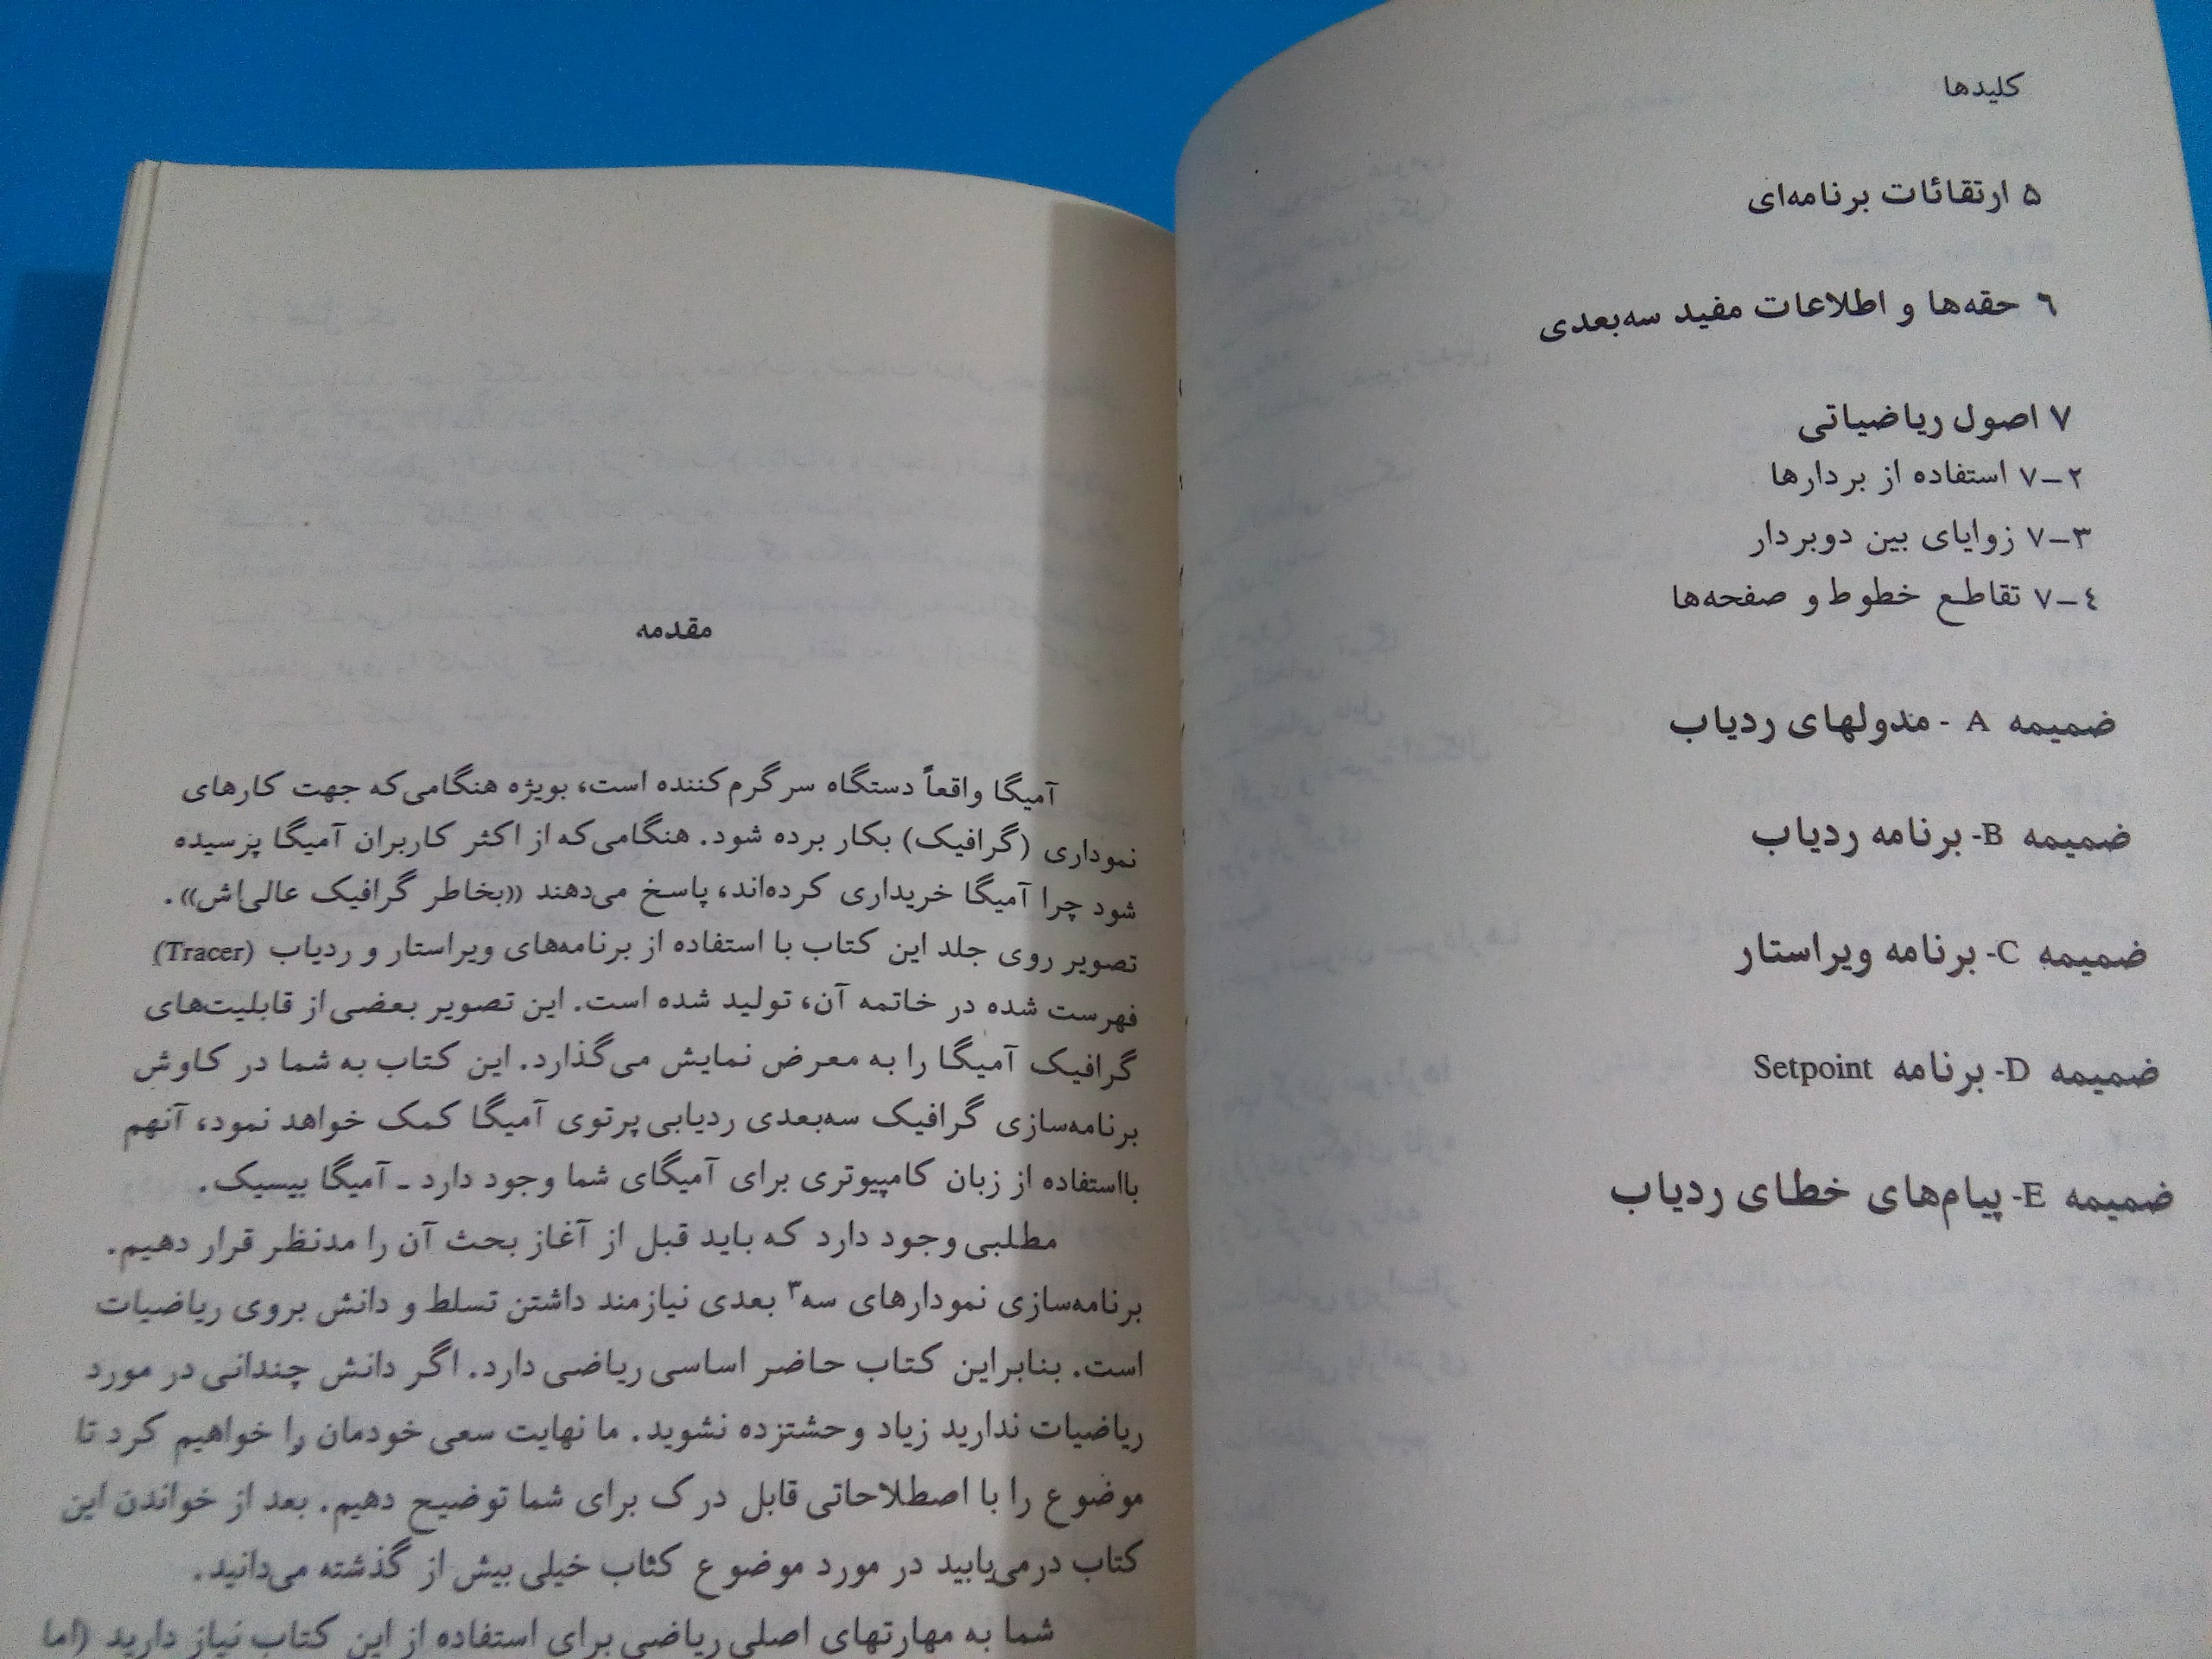 کلیدها
۵ ارتقائات برنامه‌ای
۶ حقه‌ها و اطلاعات مفید سه‌بعدی
۷ اصول ریاضیاتی
۷–۲ استفاده از بردارها
۷–۳ زوایای بین دوبردار
۷–۴ تقاطع خطوط و صفحه‌ها
ضمیمه A - مدولهای ردیاب
ضمیمه B- برنامه ردیاب
ضمیمه C- برنامه ویراستار
ضمیمه D- برنامه Setpoint
ضمیمه E- پیام‌های خطای ردیاب
مقدمه
آمیگا واقعاً دستگاه سرگرم‌کننده است، بویژه هنگامی‌که جهت کارهای
نموداری (گرافیک) بکار برده شود. هنگامی‌که از اکثر کاربران آمیگا پرسیده
شود چرا آمیگا خریداری کرده‌اند، پاسخ می‌دهند «بخاطر گرافیک عالی‌اش».
تصویر روی جلد این کتاب با استفاده از برنامه‌های ویراستار و ردیاب (Tracer)
فهرست شده در خاتمه آن، تولید شده است. این تصویر بعضی از قابلیت‌های
گرافیک آمیگا را به معرض نمایش می‌گذارد. این کتاب به شما در کاوش
برنامه‌سازی گرافیک سه‌بعدی ردیابی پرتوی آمیگا کمک خواهد نمود، آنهم
بااستفاده از زبان کامپیوتری برای آمیگای شما وجود دارد ـ آمیگا بیسیک.
مطلبی وجود دارد که باید قبل از آغاز بحث آن را مدنظر قرار دهیم.
برنامه‌سازی نمودارهای سه۳ بعدی نیازمند داشتن تسلط و دانش بروی ریاضیات
است. بنابراین کتاب حاضر اساسی ریاضی دارد. اگر دانش چندانی در مورد
ریاضیات ندارید زیاد وحشتزده نشوید. ما نهایت سعی خودمان را خواهیم کرد تا
موضوع را با اصطلاحاتی قابل درک برای شما توضیح دهیم. بعد از خواندن این
کتاب درمی‌یابید در مورد موضوع کتاب خیلی بیش از گذشته می‌دانید.
شما به مهارتهای اصلی ریاضی برای استفاده از این کتاب نیاز دارید (اما